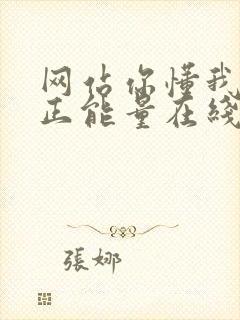 网估你懂我
正能量在线
張娜